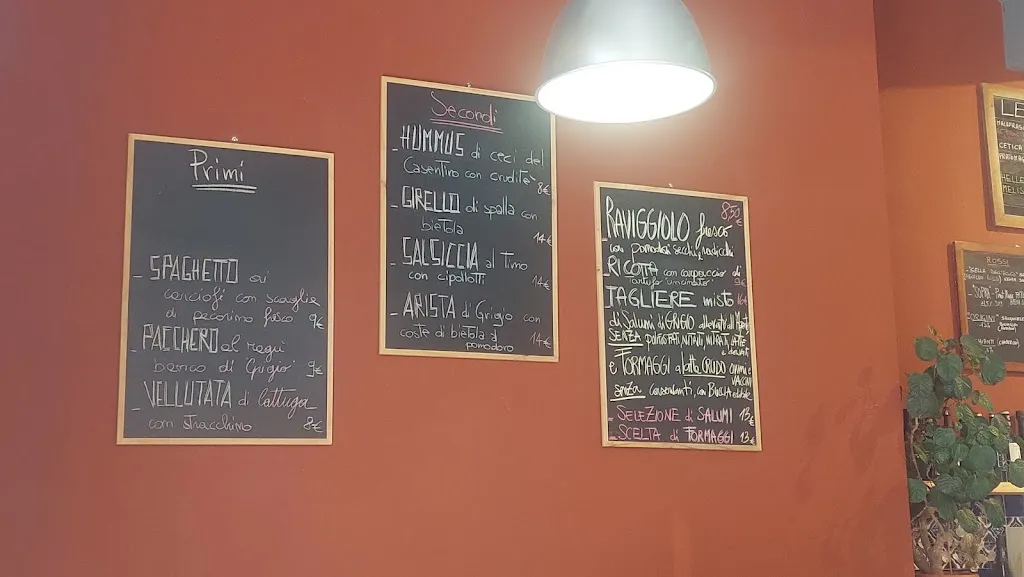 Primi
- SPAGHETTO ai
carciofi con scaglie
di pecorino fresco 9€
- PACCHERO al ragù
bianco di Grigio 9€
- VELLUTATA di lattuga
con stracchino 8€
Secondi
- HUMMUS di ceci del
Casentino con crudité 8€
- GIRELLO di spalla con
bietola 14€
- SALSICCIA al Timo
con cipollotti 14€
- ARISTA di Grigio con
coste di bietola a
pomodoro 14€
RAVIGGIOLO fresco 8,50€
con pomodori secchi e radicchi
RICOTTA con carpaccio di
tartufo uncinato 9€
TAGLIERE misto 16€
di Salumi di GRIGIO
SENZA NITRATI, LATTE
e FORMAGGI a latte CRUDO
VACCINI
senza conservanti, con
- SELEZIONE di SALUMI 13€
- SCELTA di FORMAGGI 13€
LE
CETICA
HELLE
MELIS
ROSSI
"ORIGINI"
CHIANTI